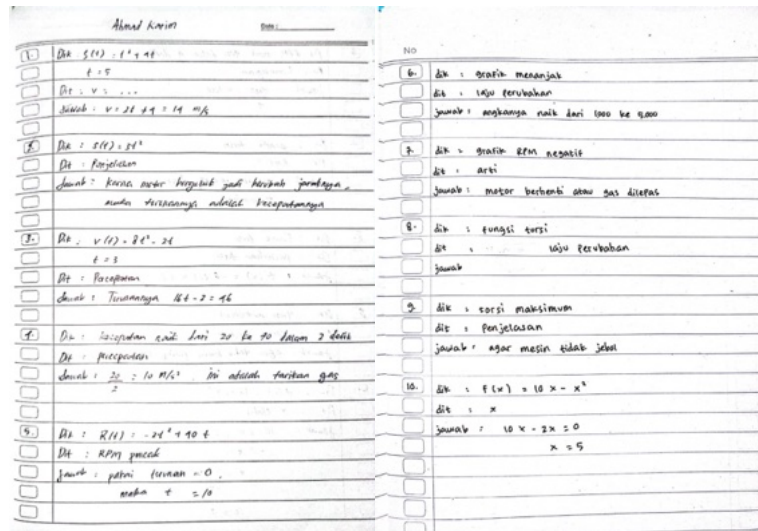 Ahmad Karim
Date:
1. Dik S(t) = t² + 4t
t = 5
Dit : v = ...
Jawab : v = 2t + 4 = 14 m/s
2. Dik : s(t) = 5t²
Dit : Penjelasan
Jawab : Karna motor bergerak jadi berubah jaraknya,
maka turunannya adalah kecepatannya
3. Dik : v(t) = 8t² - 2t
t = 3
Dit : Percepatan
Jawab : Turunannya 16t - 2 = 46
4. Dik : kecepatan naik dari 20 ke 40 dalam 2 detik
Dit : percepatan
Jawab : 20/2 = 10 m/s² ini adalah tarikan gas
5. Dik : R(t) = -2t² + 40t
Dit : RPM puncak
Jawab : pakai turunan = 0,
maka t = 10
No
6. dik : grafik menanjak
dit : laju perubahan
jawab : angkanya naik dari 1000 ke 5000
7. dik : grafik RPM negatif
dit : arti
jawab : motor berhenti atau gas dilepas
8. dik : fungsi torsi
dit : laju perubahan
jawab
9. dik : torsi maksimum
dit : Penjelasan
jawab : agar mesin tidak jebol
10. dik : f(x) = 10x - x²
dit : x
jawab : 10x - 2x = 0
x = 5